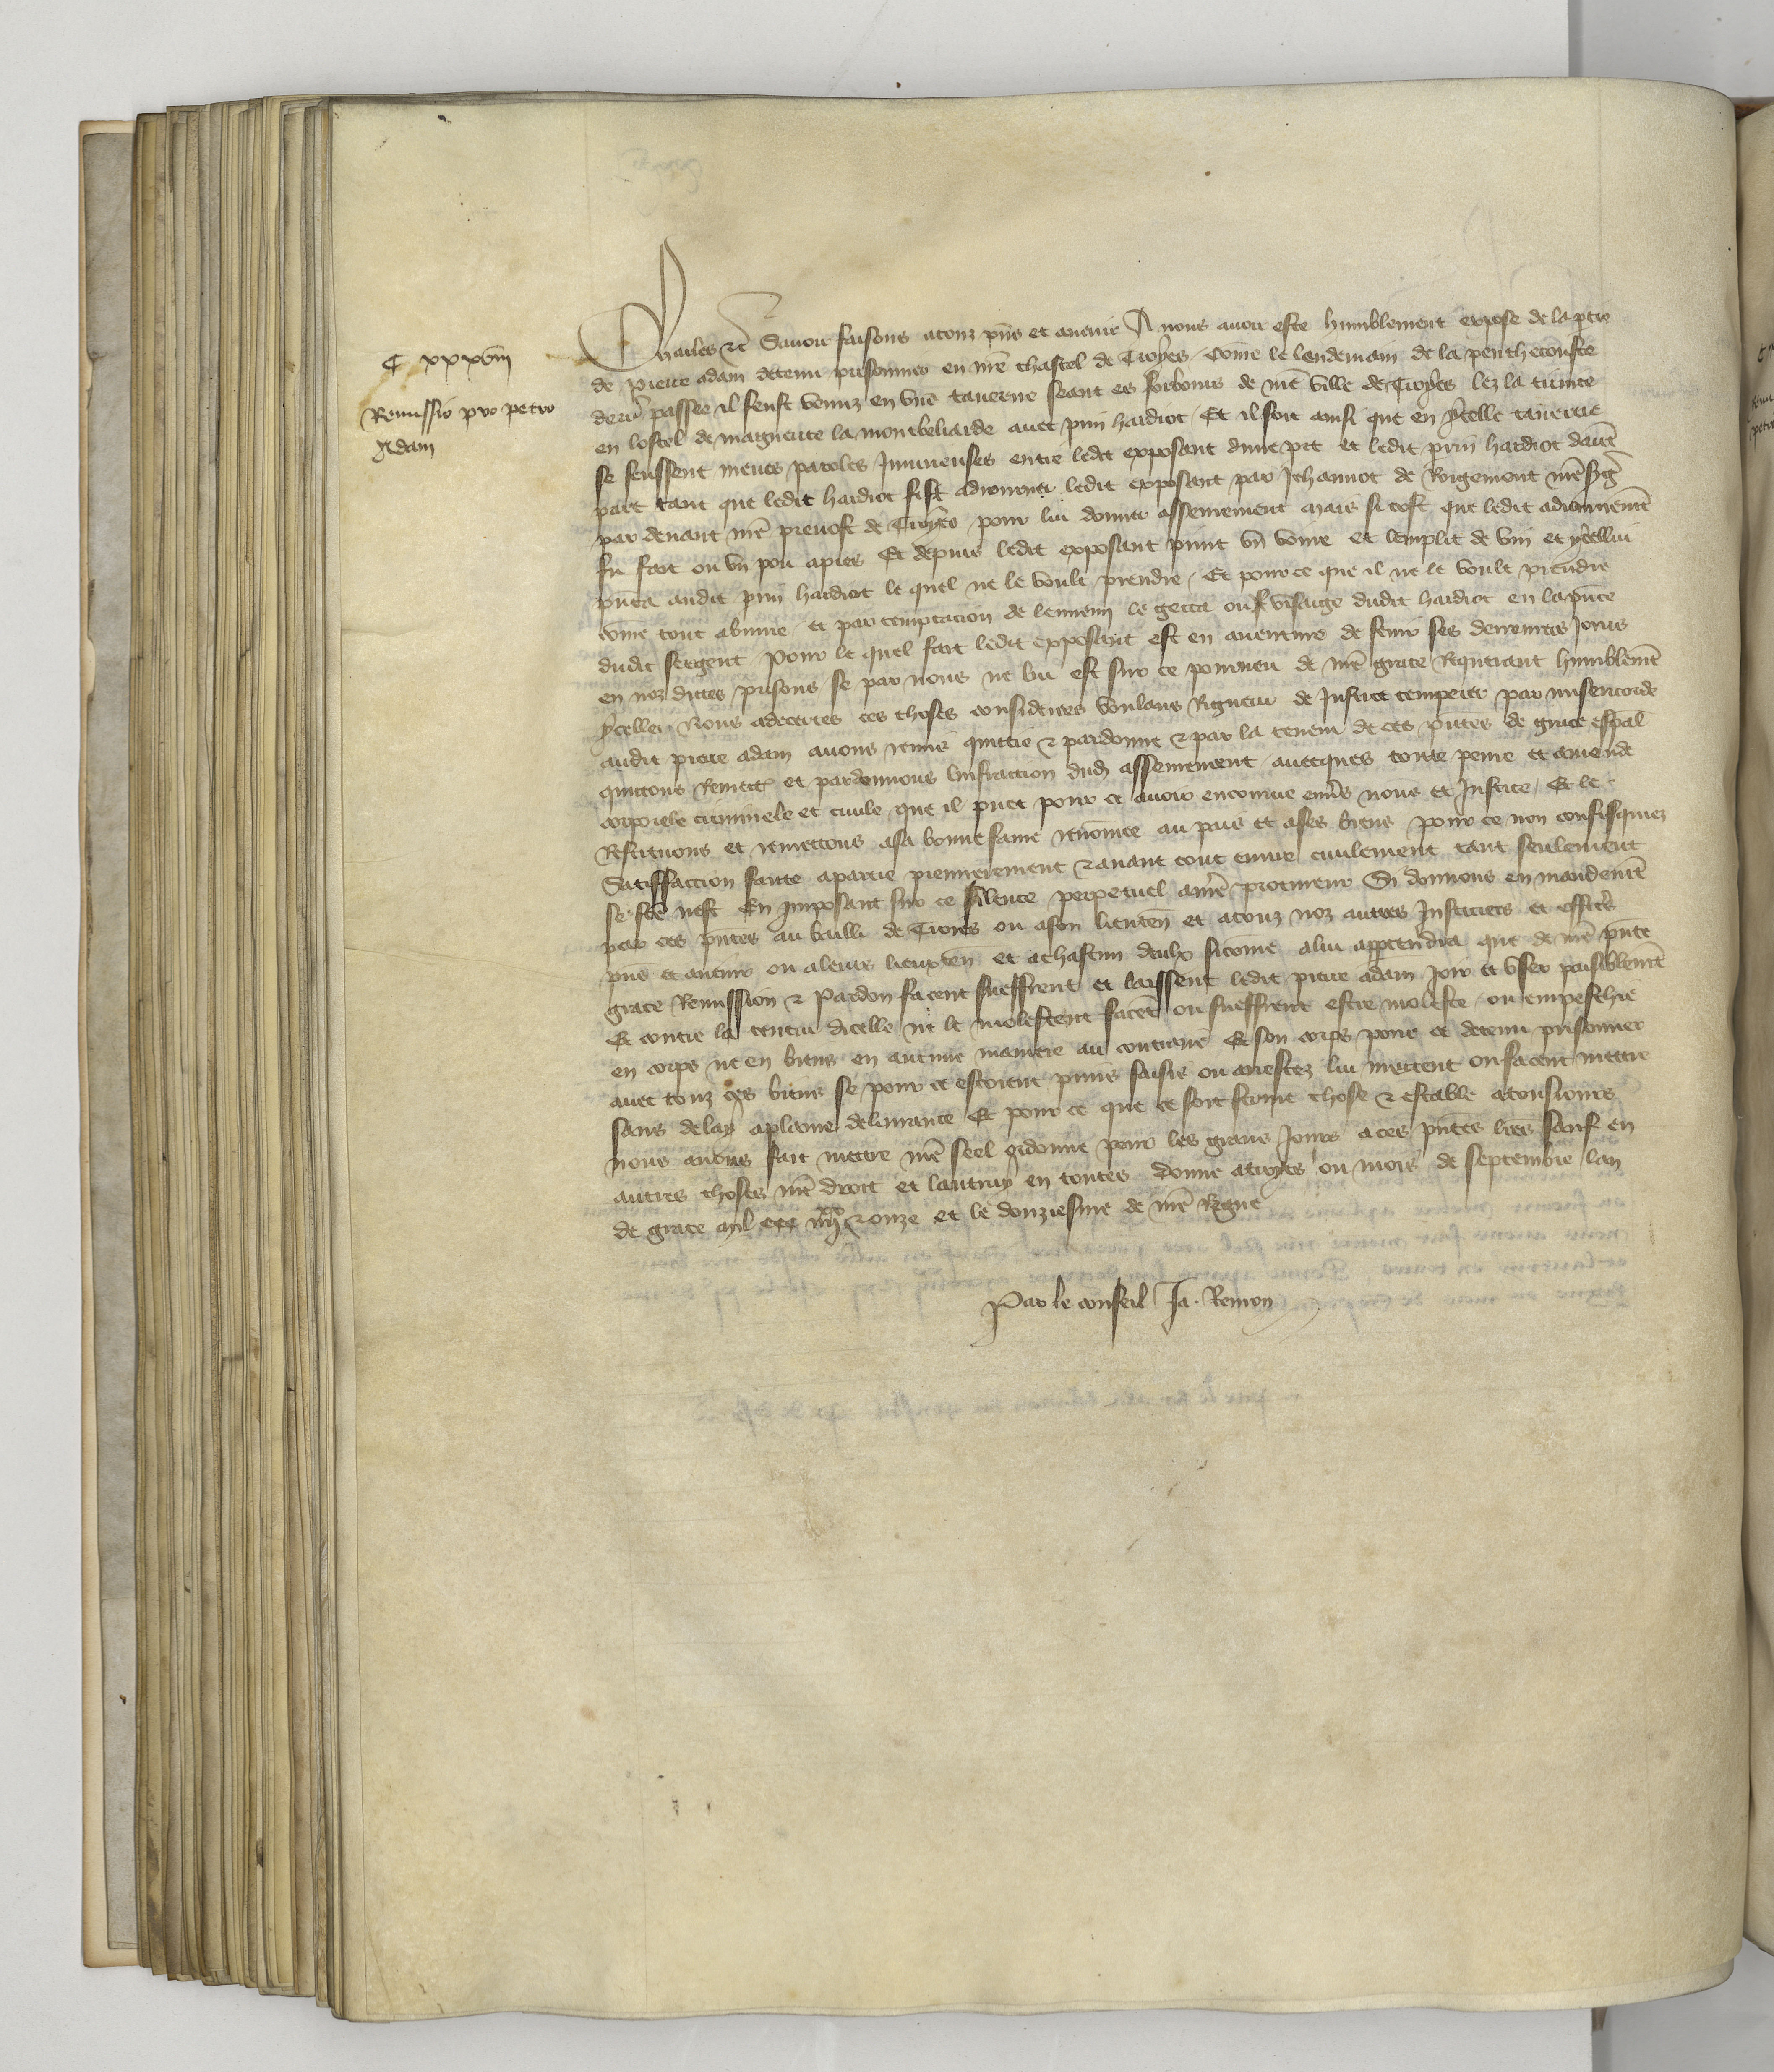 C xxxviii
Remissio pro petro
Adam
Charles etc Savoir faisons a touz pns et avenir A nous avoir este humblement expose de la ptie
de Pierre adam detenu prisonnier en nre chastel de Troyes Come le lendemain de la penthecouste
derr passee il feust venuz en une taverne seant es forbours de nre ville de Troyes lez la trinite
en lostel de marguerite la montbeliarde avec prin hardiot Et il soit ainsi que en ycelle taverne
se feussent meues paroles Iniurieuses entre ledit exposant dune pt et ledit prin hardiot dautre
part tant que ledit hardiot fist adiourner ledit exposant par Jehannot de Rougemont nre sergt
par devant nre prevost de Troyes pour lui donner asseurement mais si tost que ledit adiournemt
fu fait ou un pou apres Et depuis ledit exposant print un voirre et lemplit de vin et ycellui
pnta audit prin hardiot le quel ne le voult prendre Et pource que il ne le voult prendre
come tout abuvre et par temptacion de lennemi le gecta ou visaige dudit hardiot en la pnce
dudit sergent Pour le quel fait ledit exposant est en aventure de fenir ses derreniers Jours
en noz dictes prisons se par nous ne lui est sur ce pourveu de nre grace Requerant humblemt
ycelle Nous adecertes ces choses considerees voulans Rigueur de Justice temperer par misericorde
audit pierre adam avons remis quittie et pardonne et par la teneur de ces pntes de grace espal
quittons Remett et pardonnons linfraction dud asseurement avecques toute peine et amende
corporele criminele et civile que il puet pour ce avoir encourue envers nous et Justice Et le
Restituons et remettons a sa bonne fame renomee au pais et a ses biens pour ce non confisquez
Satisfaccion faite a partie premierement et avant tout euvre civilement tant seulement
se fte nest En Imposant sur ce silence perpetuel a nre procureur Si donnons en mandemt
par ces pntes au bailli de Troyes ou a son lieuten et a touz noz autres Justiciers et officrs
pns et avenir ou a leurs lieuxten et a chascun deulx si come a lui appartendra que de nre pnte
grace Remission et Pardon facent sueffrent et laissent ledit pierre adam joir et user paisiblemt
Et contre la teneur dicelle ne le molestent facet ou sueffrent estre moleste ou empeschie
en corps ne en biens en aucune maniere au contraire Et son corps pour ce detenu prisonnier
avec touz ses biens se pour ce estoient prins saisis ou arrestez lui mettent ou facent mettre
sans delay a plaine delivrance Et pour ce que ce soit ferme chose et estable a tousiours
nous avons fait mettre nre seel ordonne pour les grans Jours a ces pntes lres Sauf en
autres choses nre droit et lautruy en toutes Donne a troyes ou mois de septembre lan
de grace mil ccc iiiixx et onze et le douziesme de nre Regne
Par le conseil Ja. Remon